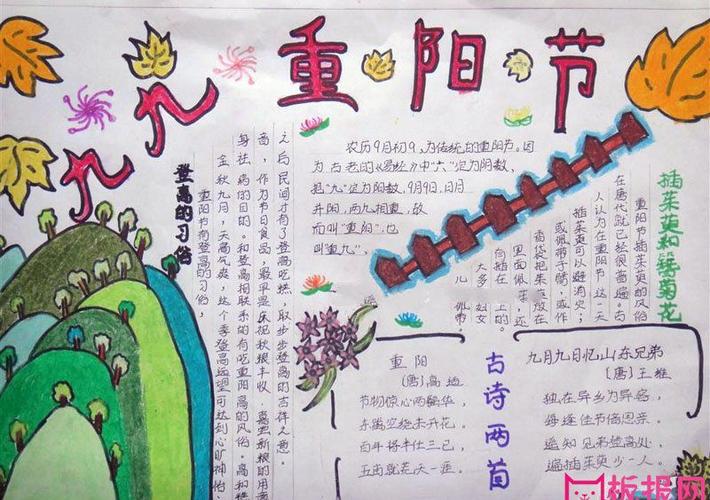 九九重阳节
农历9月初9,为传统的重阳节。因
为古老的《易经》中“六”定为阴数,
把“九”定为阳数,9月9日,日月
并阳,两九相重,故
而叫“重阳”,也
叫“重九”,
登高的习俗
重阳节有登高的习俗,
金秋九月,天高气爽,这个季登高远望可达到心旷神怡、
身祛病的目的。和登高相联系的有吃重阳高的风俗。高和糕
高,作为节日食品,最早是庆祝秋粮丰收、喜尝新粮的用意
之后民间才有了登高吃糕,取步步登高的吉祥之意。
插茱萸和簪菊花
重阳节插茱萸的风俗
在唐代就已经很普遍。古
人认为在重阳节这一天
插茱萸可以避消灾;
或佩带于臂,或作
香袋把茱萸放在
里面佩带,还
有插在头上的。
大多妇女
儿佩带
古诗两首
重阳
(唐)高适
节物惊心两鬓华,
东篱空绕未开花。
百年将半仕三已,
五亩就荒天一涯。
九月九日忆山东兄弟
〔唐〕王维
独在异乡为异客,
每逢佳节倍思亲。
遥知兄弟登高处,
遍插茱萸少一人。
板报网